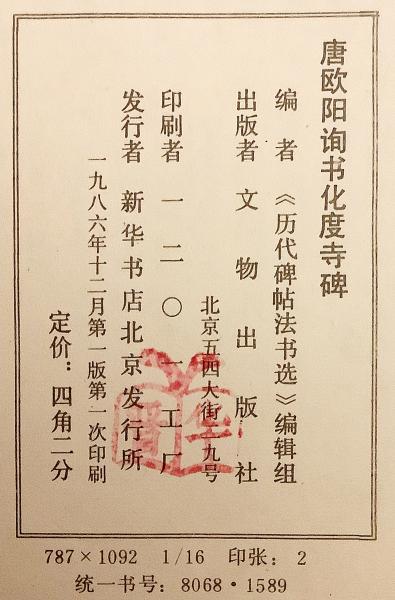 唐欧阳询书化度寺碑
编者《历代碑帖法书选》编辑组
出版者文物出版社
北京五四大街二九号
印刷者一二〇一工厂
发行者新华书店北京发行所
一九八六年十二月第一版第一次印刷
定价：四角二分
787×1092 1/16 印张：2
统一书号：8068·1589